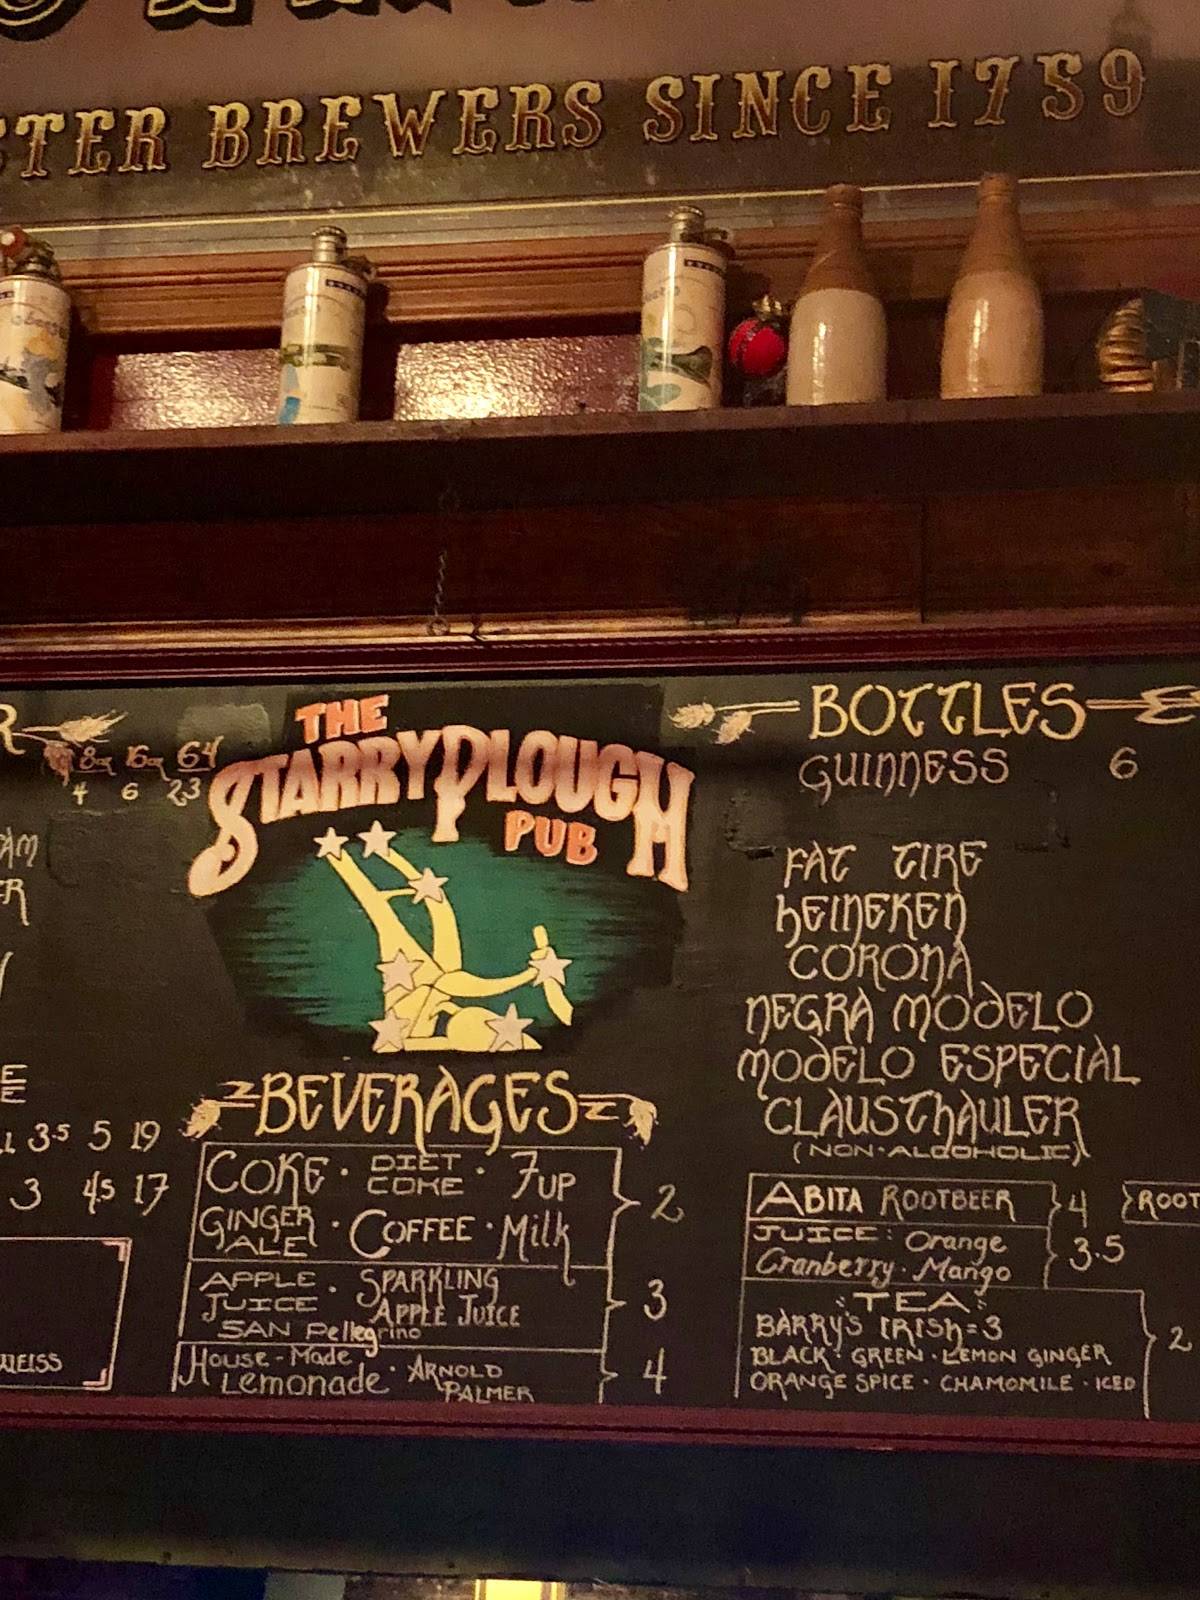 BREWERS SINCE 1759
8oz 16oz 64
4 6 23
3.5 5 19
3 4.5 17
THE
STARRY PLOUGH
PUB
BEVERAGES
COKE · DIET COKE · 7UP
GINGER ALE · COFFEE · Milk
2
APPLE JUICE · SPARKLING APPLE JUICE
SAN Pellegrino
3
House-Made Lemonade · ARNOLD PALMER
4
BOTTLES
GUINNESS 6
FAT TIRE
HEINEKEN
CORONA
NEGRA MODELO
MODELO ESPECIAL
CLAUSTHAULER
(NON-ALCOHOLIC)
ABITA ROOTBEER 4
ROOT
JUICE: Orange
Cranberry · Mango
3.5
TEA
BARRY'S IRISH=3
BLACK · GREEN · LEMON GINGER
ORANGE SPICE · CHAMOMILE · ICED
2